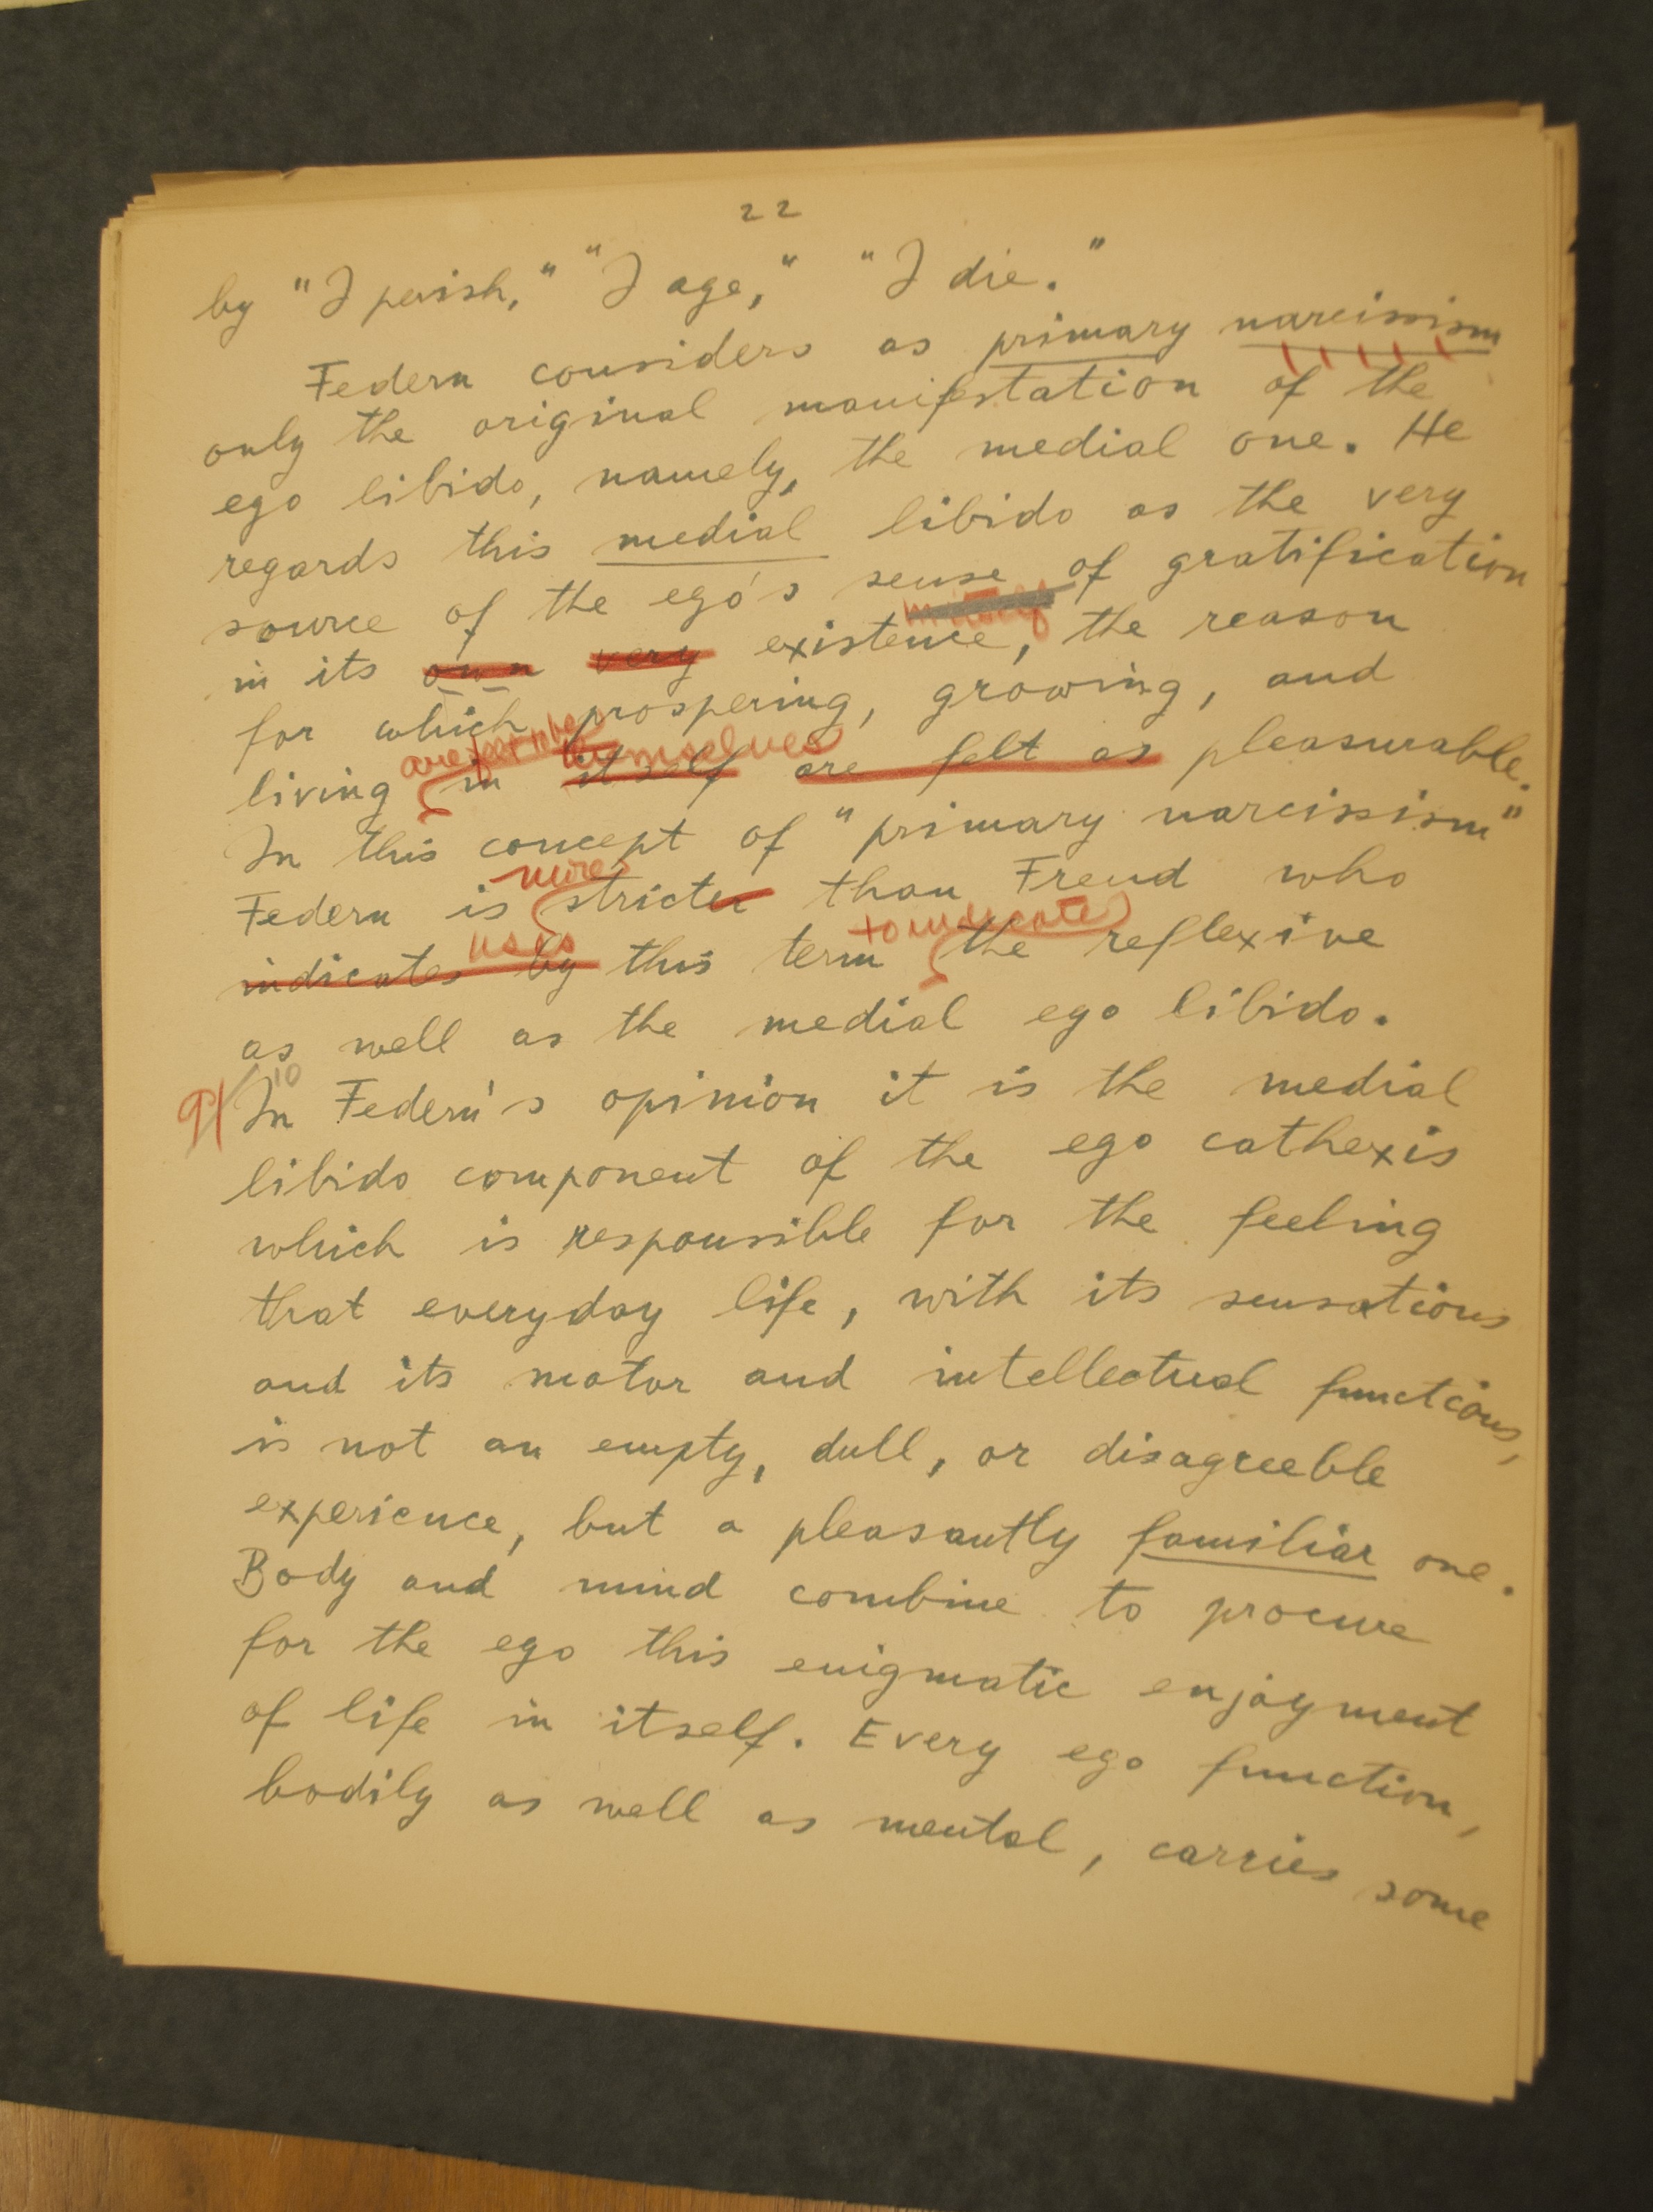 22
by "I perish," "I age," "I die."
Federn considers as primary narcissism
only the original manifestation of the
ego libido, namely, the medial one. He
regards this medial libido as the very
source of the ego's sense of gratification
in its own very existence, the reason
for which prospering, growing, and
are felt to be themselves
living in itself are felt as pleasurable.
In this concept of "primary narcissism"
more
Federn is stricter than Freud who
uses to indicate
indicates by this term the reflexive
as well as the medial ego libido.
10
In Federn's opinion it is the medial
libido component of the ego cathexis
which is responsible for the feeling
that everyday life, with its sensations
and its motor and intellectual functions,
is not an empty, dull, or disagreeble
experience, but a pleasantly familiar one.
Body and mind combine to procure
for the ego this enigmatic enjoyment
of life in itself. Every ego function,
bodily as well as mental, carries some